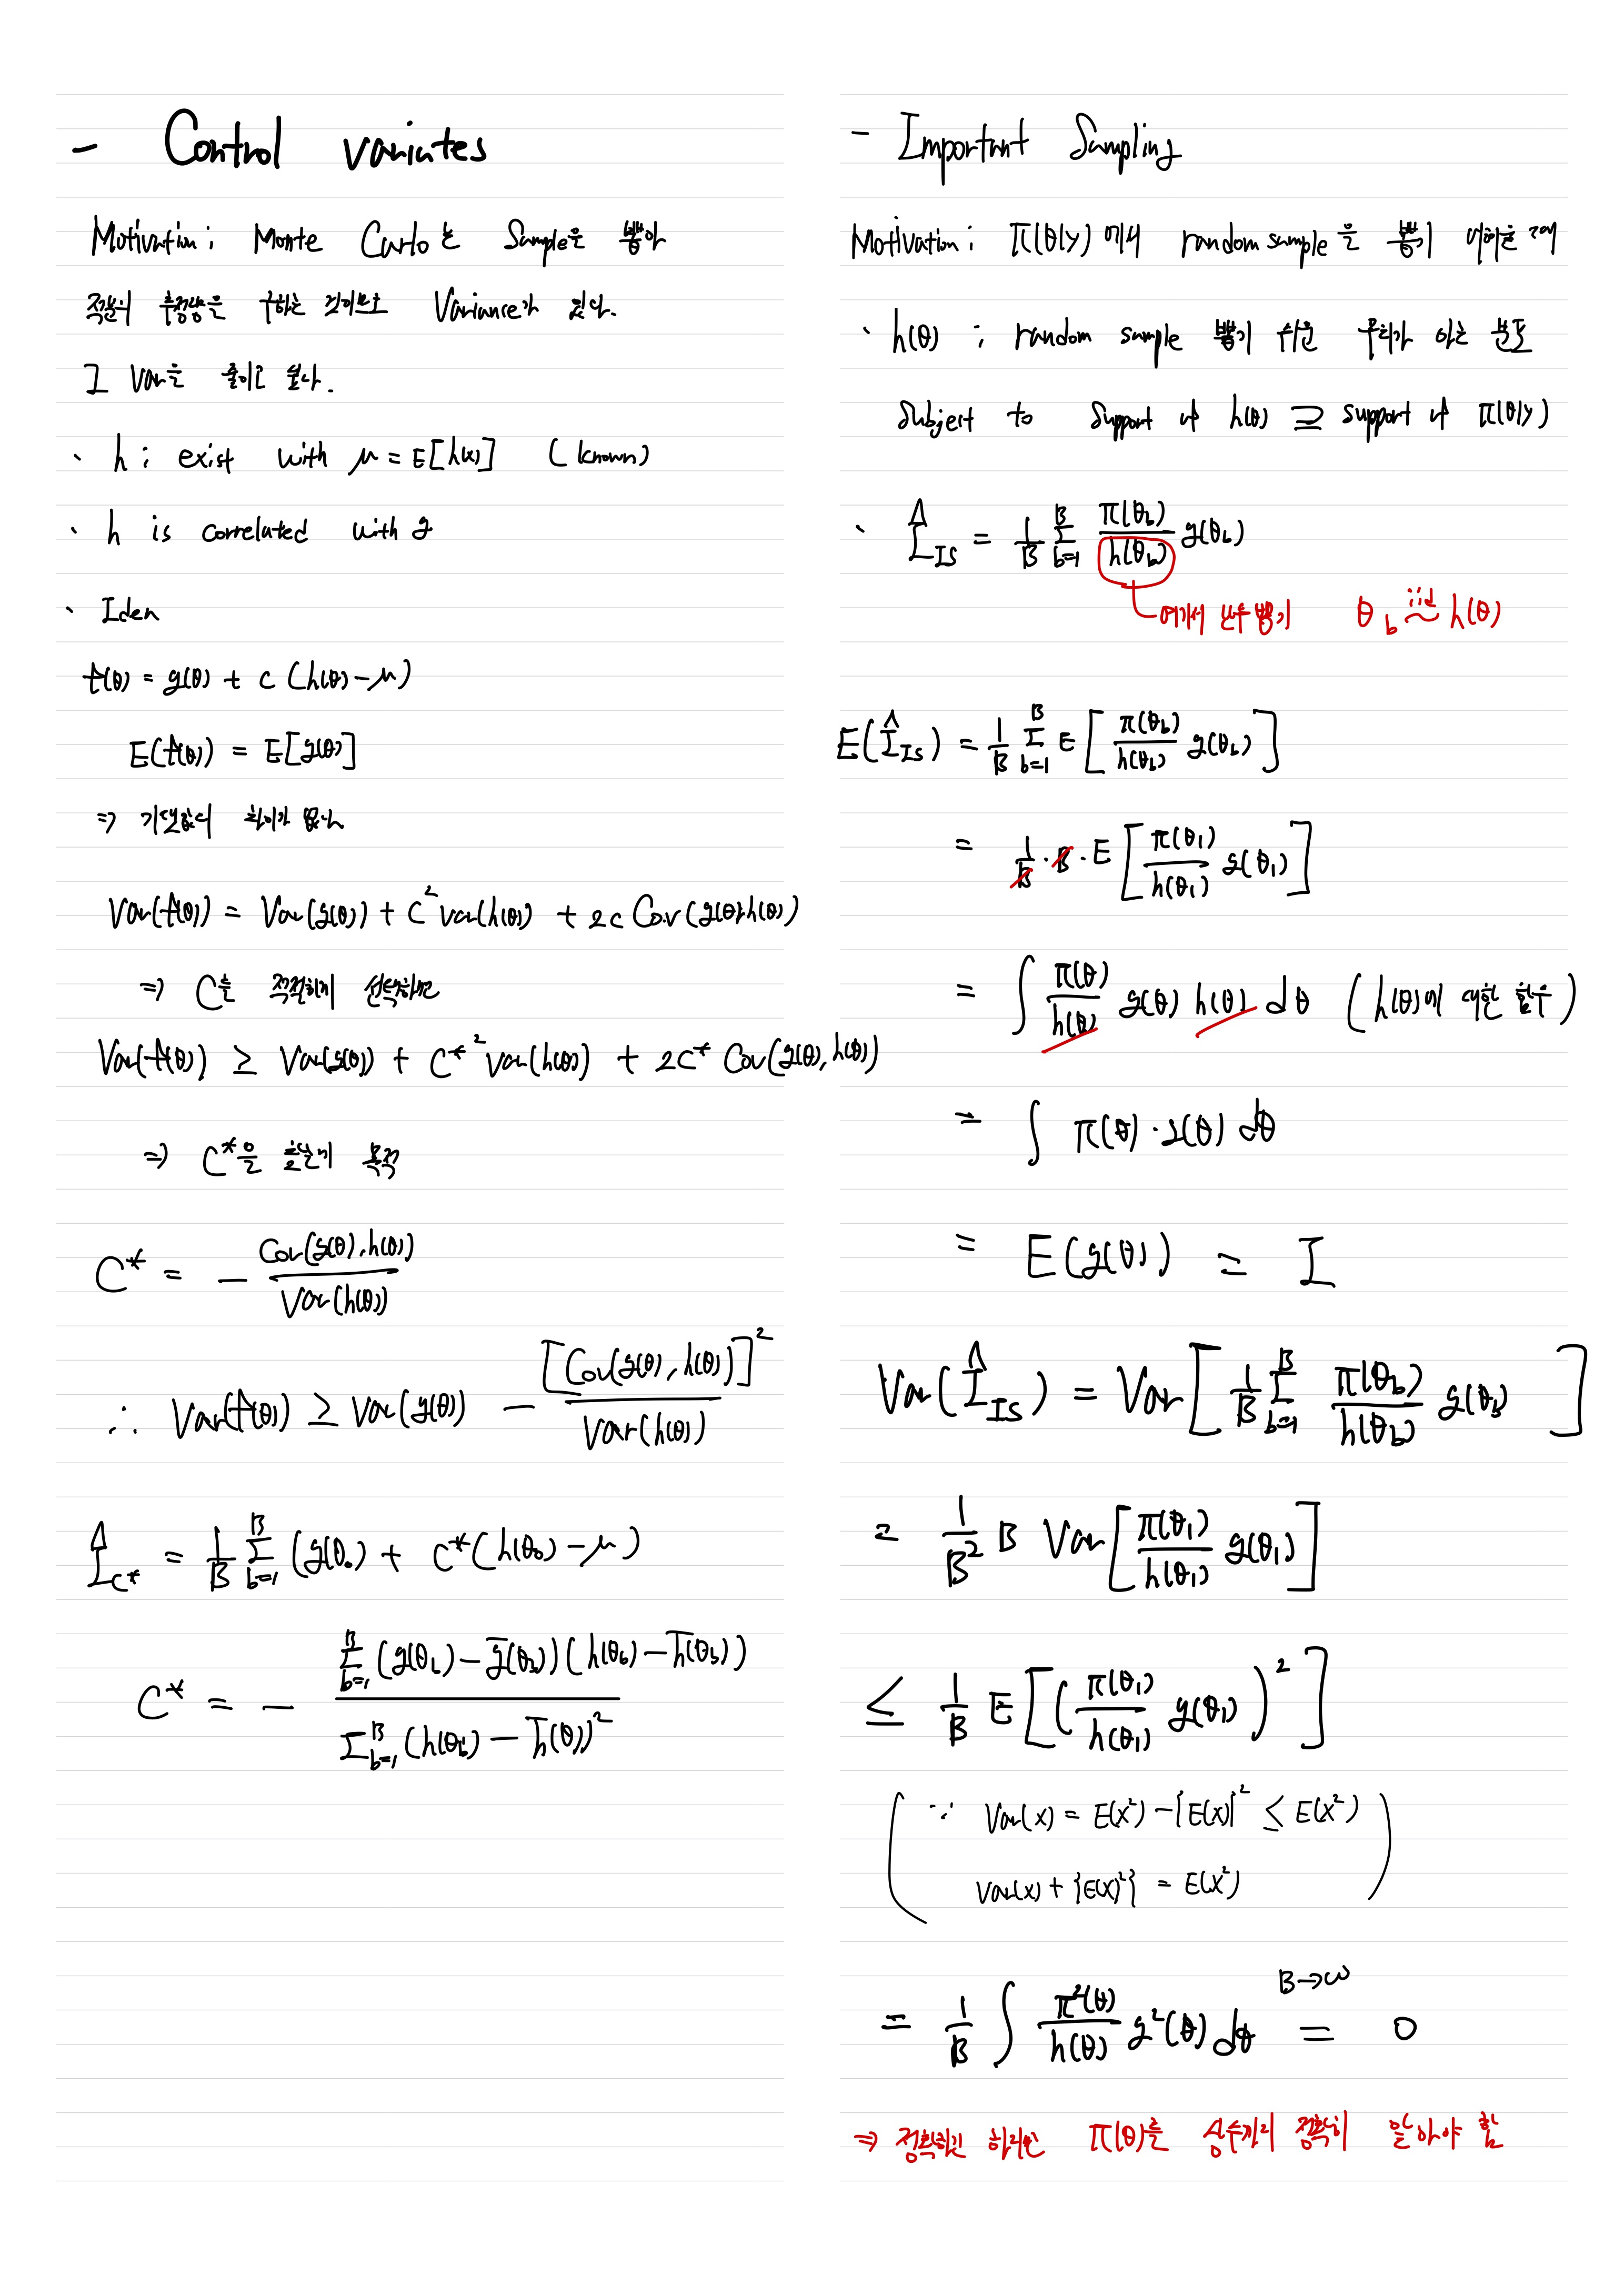 - Control variates
Motivation : Monte Carlo는 Sample을 뽑아
적분의 추정량을 구하는 것이므로 Variance가 있다.
그 Var을 줄이고 싶다.
· h : exist with μ = E[h(x)] (known)
· h is correlated with g
· Idea
t(θ) = g(θ) + c (h(θ) - μ)
E(t(θ)) = E[g(θ)]
⇒ 기댓값에 차이가 없다
Var(t(θ)) = Var(g(θ)) + c² var(h(θ)) + 2c Cov(g(θ), h(θ))
⇒ C를 적절하게 선택하면
Var(t(θ)) ≥ Var(g(θ)) + C*² Var(h(θ)) + 2C* Cov(g(θ), h(θ))
⇒ C*을 찾는게 목적
C* = - Cov(g(θ), h(θ)) / Var(h(θ))
∴ Var(t(θ)) ≥ Var(g(θ)) - [Cov(g(θ), h(θ))]² / Var(h(θ))
Î_C* = 1/B Σ_{b=1}^{B} (g(θ_b) + C*(h(θ_b) - μ)
C* = - Σ_{b=1}^{B} (g(θ_b) - ḡ(θ_b)) (h(θ_b) - h̄(θ_b)) / Σ_{b=1}^{B} (h(θ_b) - h̄(θ))²
- Important Sampling
Motivation : π(θ|y) 에서 random sample 을 뽑기 어려울 때
· h(θ) : random sample 뽑기 쉬운 우리가 아는 분포
Subject to Support of h(θ) ⊇ support of π(θ|y)
· Î_IS = 1/B Σ_{b=1}^{B} π(θ_b)/h(θ_b) g(θ_b)
여기서 난수뽑기 θ_b iid~ h(θ)
E(Î_IS) = 1/B Σ_{b=1}^{B} E[π(θ_b)/h(θ_b) g(θ_b)]
= 1/B · B · E[π(θ₁)/h(θ₁) g(θ₁)]
= ∫ π(θ)/h(θ) g(θ) h(θ) dθ (h(θ)에 대한 함수)
= ∫ π(θ) · g(θ) dθ
= E(g(θ)) = I
Var(Î_IS) = Var[1/B Σ_{b=1}^{B} π(θ_b)/h(θ_b) g(θ_b)]
= 1/B² B Var[π(θ₁)/h(θ₁) g(θ₁)]
≤ 1/B E[(π(θ₁)/h(θ₁) g(θ₁))²]
(∵ Var(x) = E(x²) - {E(x)}² ≤ E(x²)
Var(x) + {E(x)²} = E(x²))
= 1/B ∫ π²(θ)/h(θ) g²(θ) dθ = 0 B→∞
⇒ 정확하긴 하려면 π(θ)를 상수까지 정확히 알아야 함